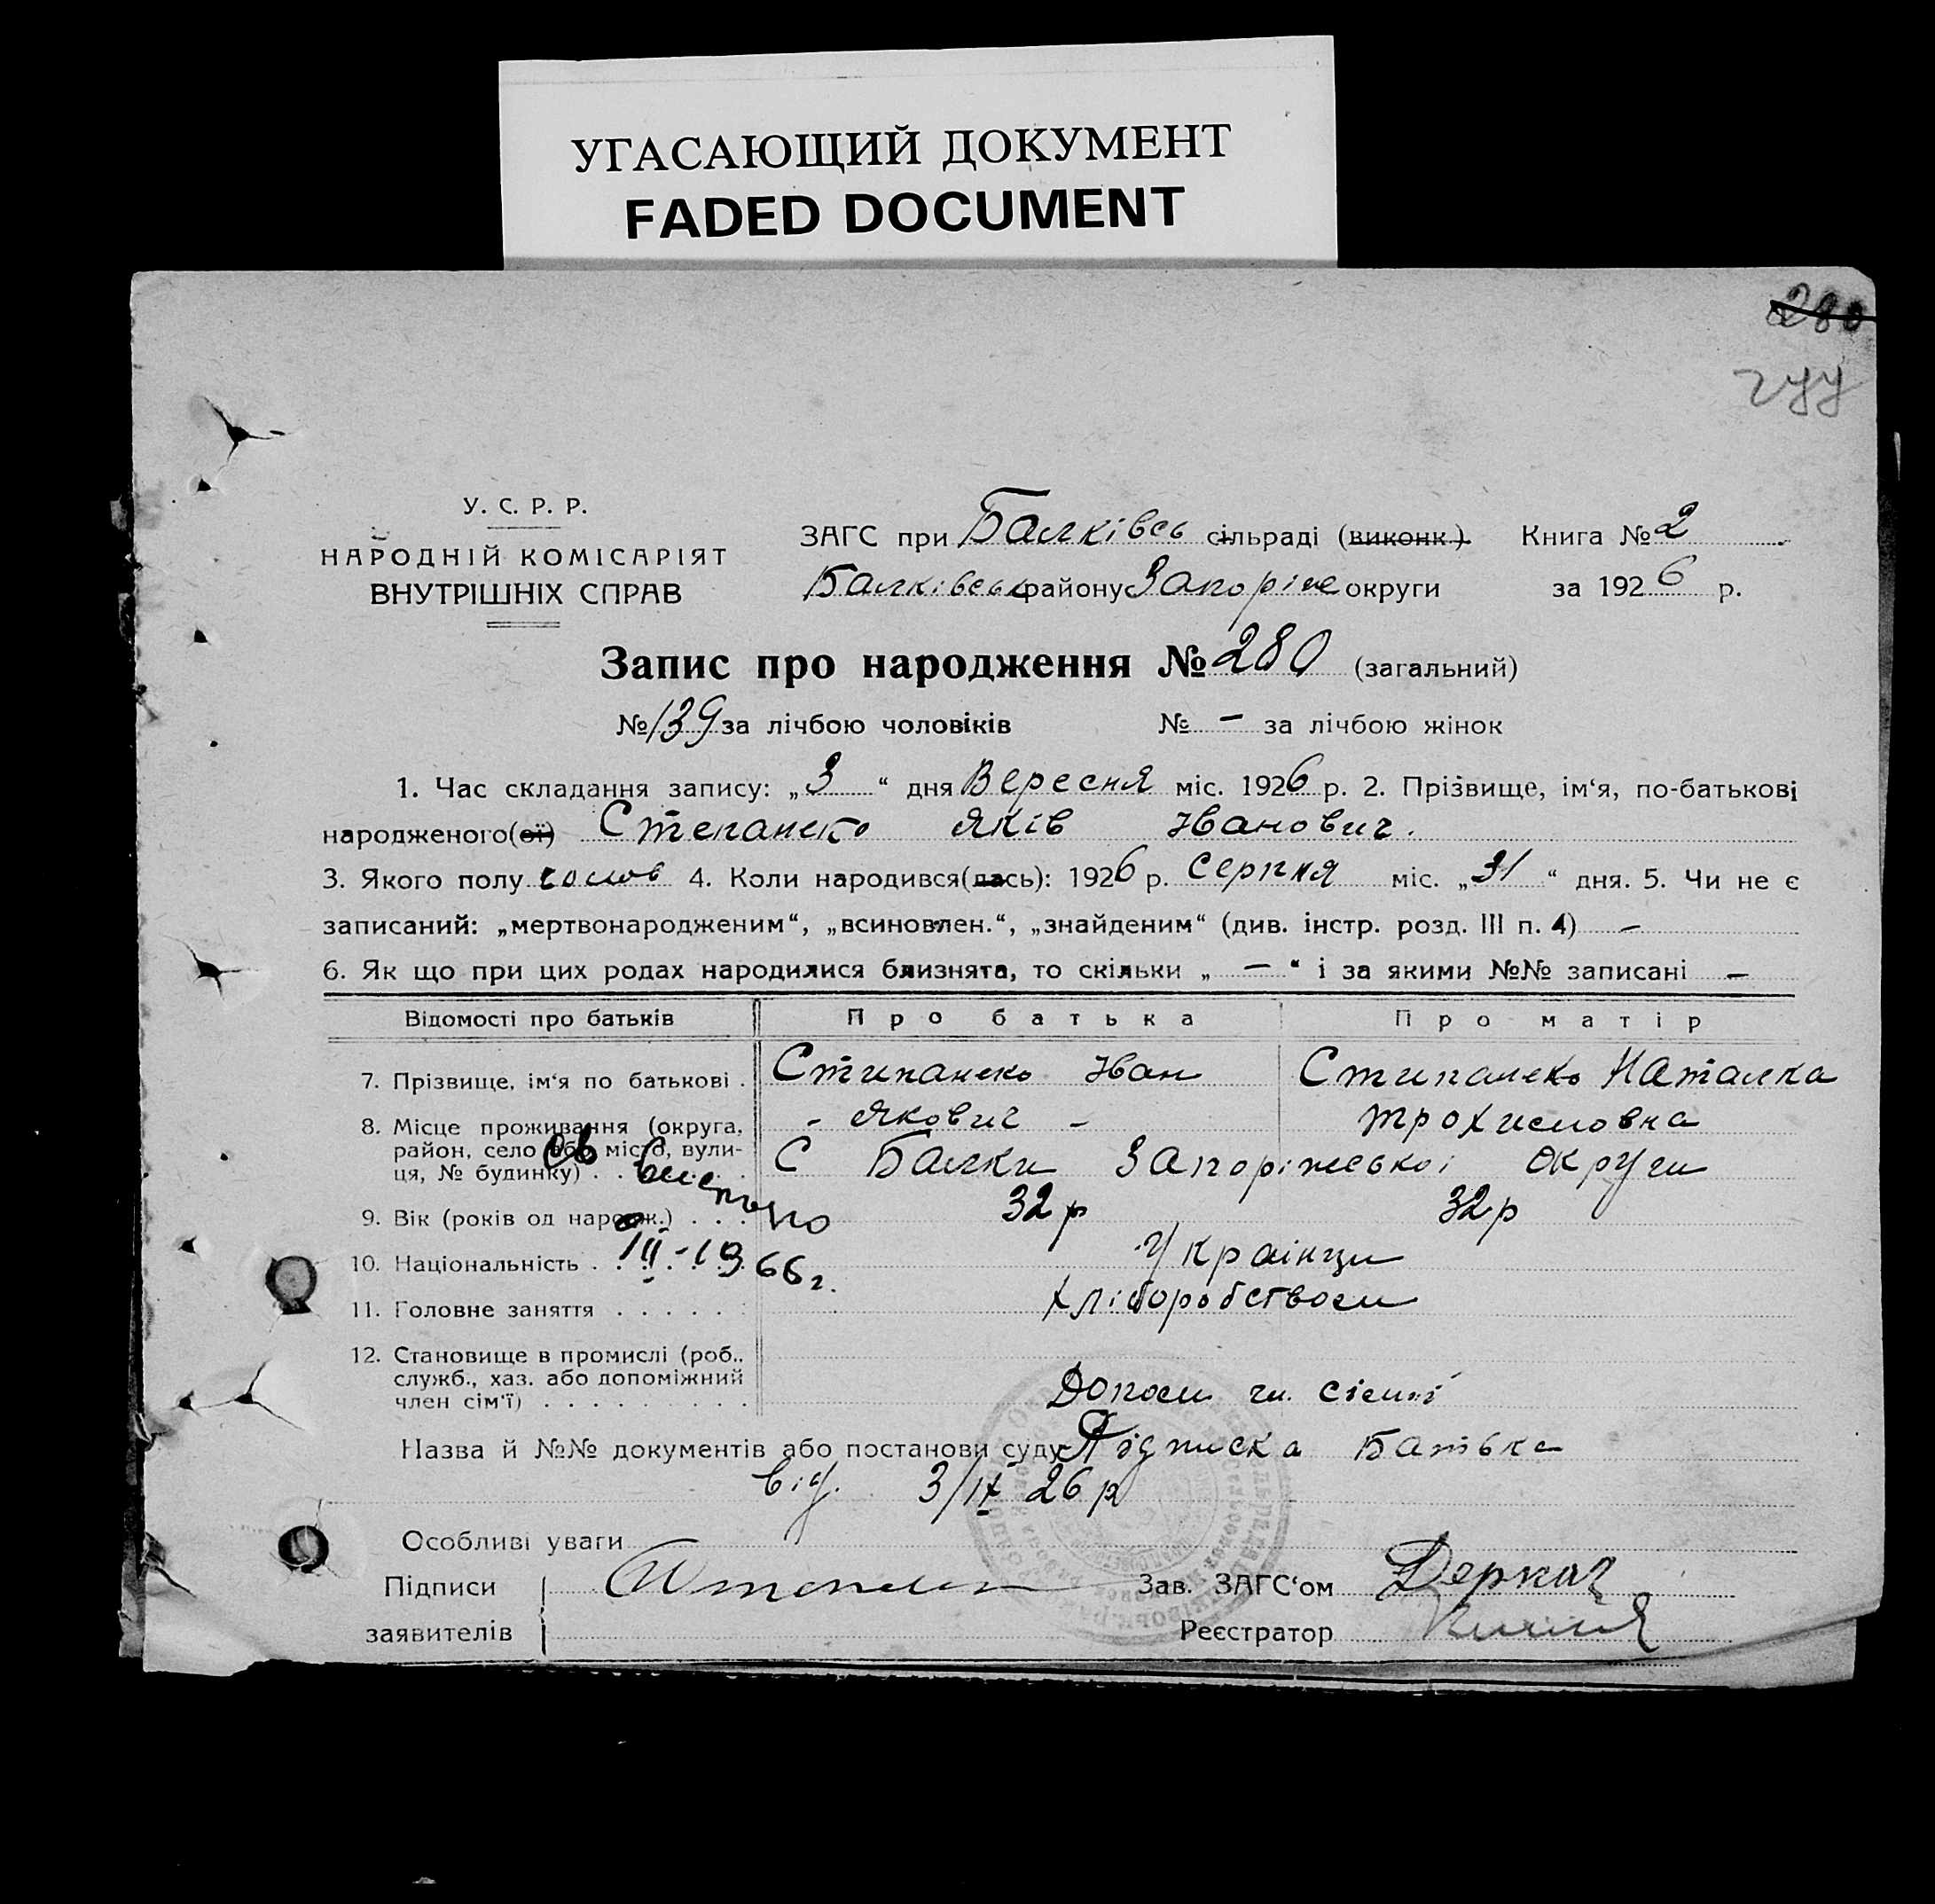 УГАСАЮЩИЙ ДОКУМЕНТ
FADED DOCUMENT
280
У. С. Р. Р.
НАРОДНІЙ КОМІСАРІЯТ
ВНУТРІШНІХ СПРАВ
ЗАГС при Балківсь сільраді (виконк). Книга № 2
Балківськ району Запоріже округи за 1926 р.
Запис про народження № 280 (загальний)
№ 139 за лічбою чоловіків № – за лічбою жінок
1. Час складання запису: „3“ дня Вересня міс. 1926 р. 2. Прізвище, ім‘я, по-батькові
народженого(ої) Степанеко Яків Іванович.
3. Якого полу чолов 4. Коли народився(лась): 1926 р. Серпня міс. „31“ дня. 5. Чи не є
записаний: „мертвонародженим“, „всиновлен.“, „знайденим“ (див. інстр. розд. III п. 4) –
6. Як що при цих родах народилися близнята, то скільки „ – “ і за якими №№ записані –
Відомості про батьків Про батька Про матір
7. Прізвище, ім‘я по батькові . Стипанеко Іван Стипанеко Наталка
- Якович - Трохимовна
8. Місце проживання (округа,
район, село або місто, вули-
ця, № будинку) . . С Балки Запоріжської Округи
Св
9. Вік (років од нарож.) . . . 32 р 32 р
10. Національність . Українци
III-1966 г.
11. Головне заняття . . . . . . Хліборобством
12. Становище в промислі (роб.,
служб., хаз. або допоміжний
член сім‘ї) . . . . . . . . . Допом чл. сімї
Назва й №№ документів або постанови суду Підписка Батька
від. 3/IX 26 р
Особливі уваги
Підписи Зав. ЗАГС‘ом Деркач
заявителів Реєстратор